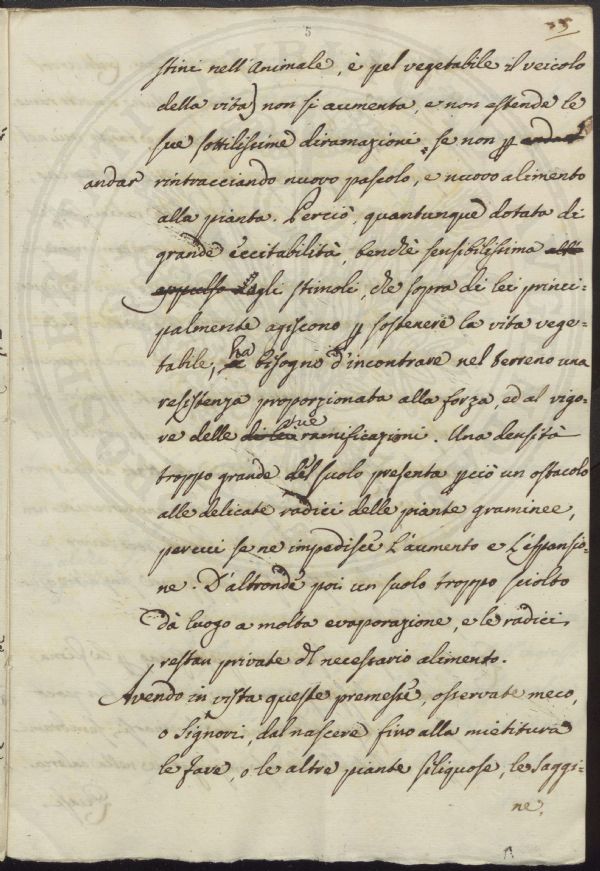 5
35
stini nell'Animale, è pel vegetabile il veicolo
della vita) non si aumenta, e non estende le
sue sottilissime diramazioni, se non p andar
andar rintracciando nuovo pascolo, e nuovo alimento
alla pianta. Perciò, quantunque dotata di
grande eccitabilità, benchè sensibilissima alla
appulso degli stimoli, che sopra di lei princi=
palmente agiscono p sostenere la vita vege=
tabile, ha bisogno d'incontrare nel terreno una
resistenza proporzionata alla forza, ed al vigo=
re delle di lei sue ramificazioni. Una densità
troppo grande del suolo presenta pciò un ostacolo
alle delicate radici delle piante graminee,
percui se ne impedisce l'aumento e l'espansio=
ne. D'altronde poi un suolo troppo sciolto
dà luogo a molta evaporazione, e le radici
restan private del necessario alimento.
Avendo in vista queste premesse, osservate meco,
o Signori, dal nascere fino alla mietitura
le fave, o le altre piante siliquose, le saggi=
ne,